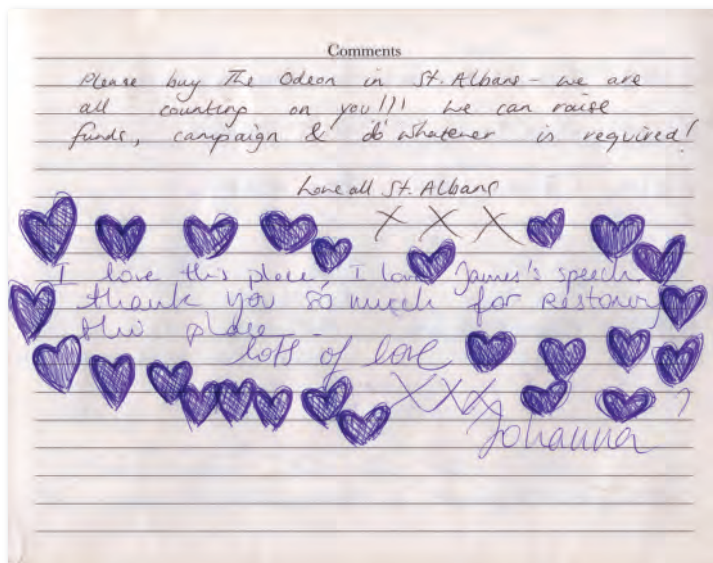 Comments
Please buy The Odeon in St. Albans - we are
all counting on you!!! We can raise
funds, campaign & do whatever is required!
Love all St. Albans
X X X
I love this place, I love James's speech.
thank you so much for restoring
this place.
lots of love
XXX
Johanna